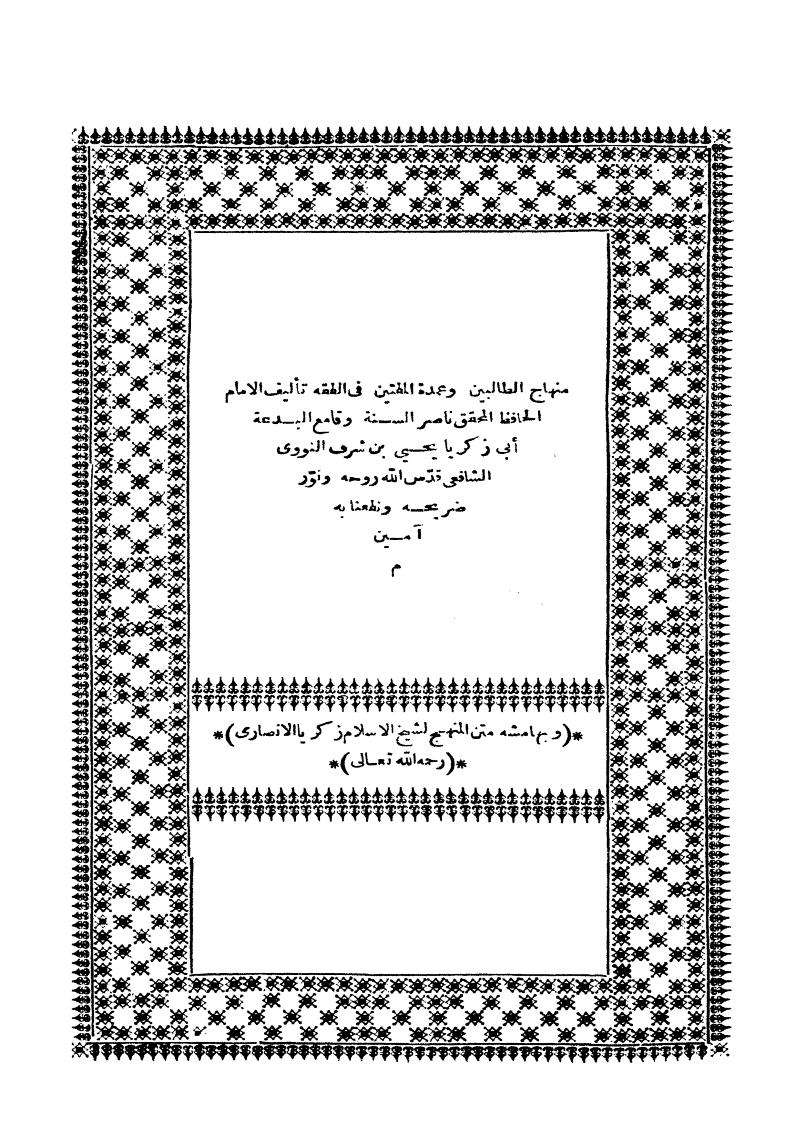 منهاج الطالبين وعمدة المفتين فى الفقه تأليف الامام
الحافظ المحقق ناصر السنة وقامع البدعة
أبي زكريا يحيي بن شرف النووى
الشافعى قدّس الله روحه ونوّر
ضريحه ونفعنا به
آمين
م
*(وبهامشه متن المنهج لشيخ الاسلام زكريا الانصارى)*
*(رحمه الله تعالى)*